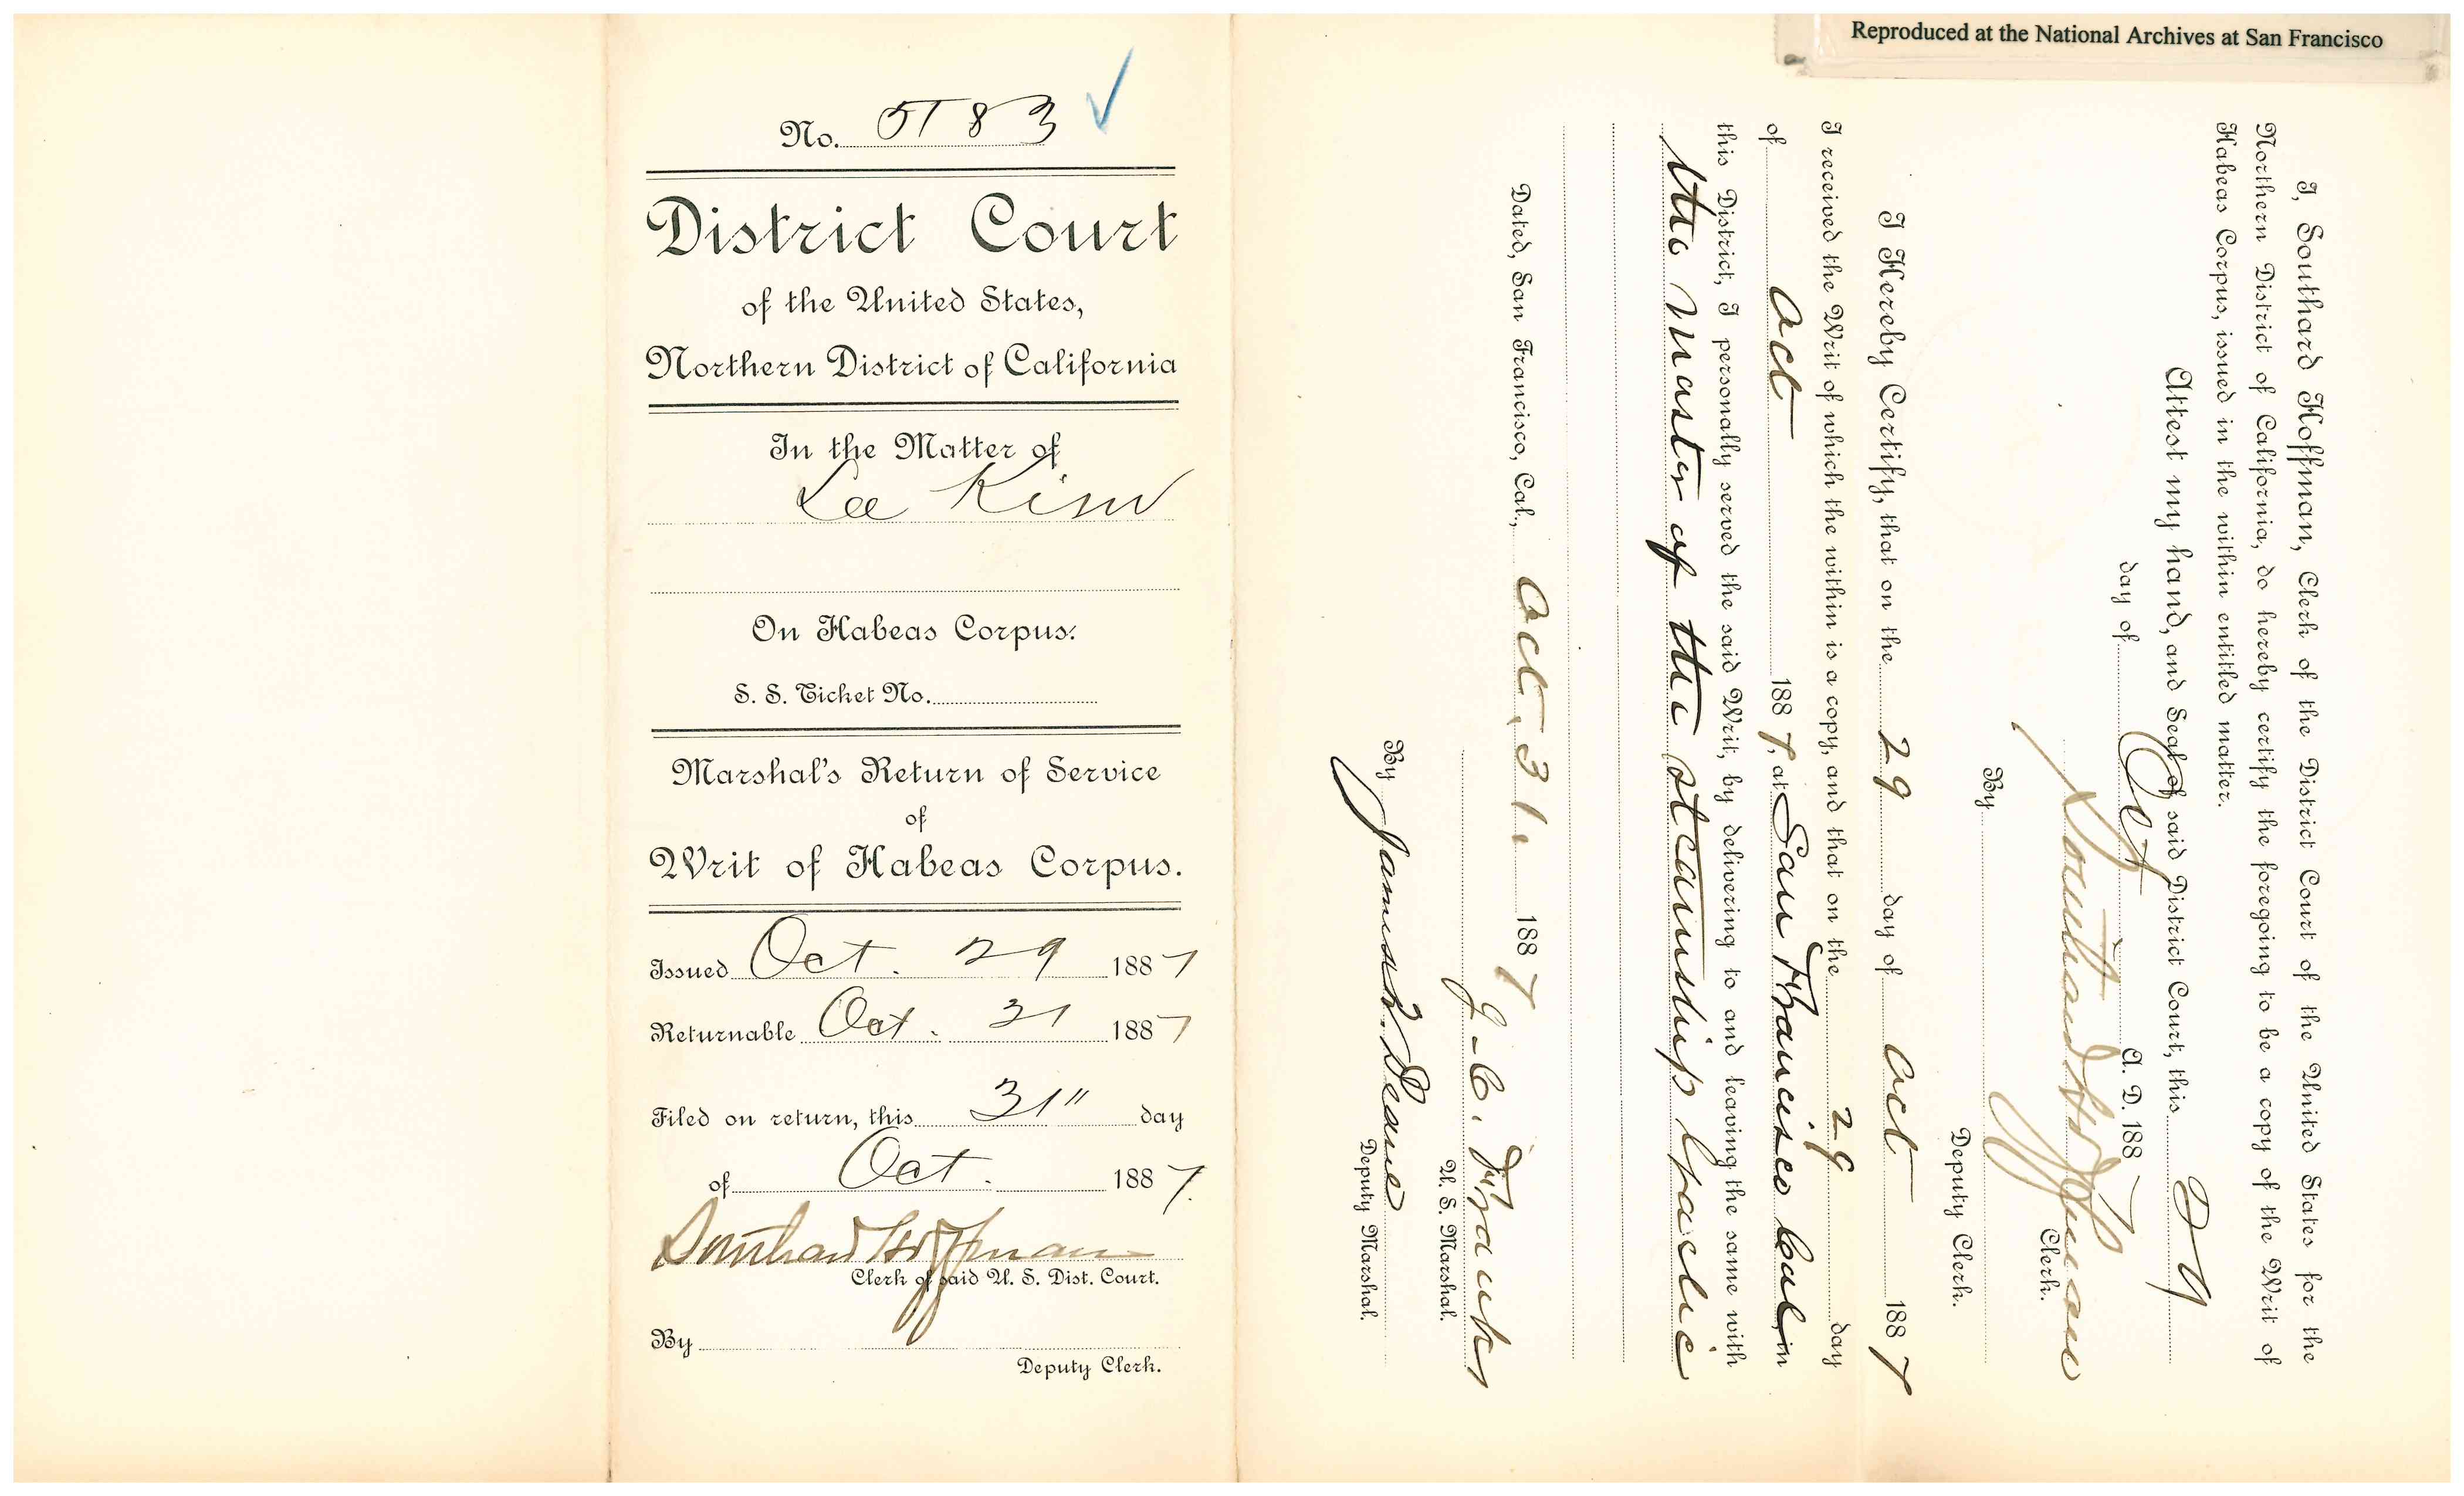 Reproduced at the National Archives at San Francisco
No. 5183
District Court
of the United States,
Northern District of California
In the Matter of
Lee Kim
On Habeas Corpus.
S. S. Ticket No.
Marshal's Return of Service
of
Writ of Habeas Corpus.
Issued Oct. 29 1887
Returnable Oct. 31 1887
Filed on return, this 31" day
of Oct. 1887.
Southard Hoffman
Clerk of said U. S. Dist. Court.
By
Deputy Clerk.
I, Southard Hoffman, Clerk of the District Court of the United States for the
Northern District of California, do hereby certify the foregoing to be a copy of the Writ of
Habeas Corpus, issued in the within entitled matter.
Attest my hand, and Seal of said District Court, this 29
day of Oct A. D. 1887
Southard Hoffman
Clerk.
By
Deputy Clerk.
I Hereby Certify, that on the 29 day of Oct 1887
I received the Writ of which the within is a copy, and that on the 29 day
of Oct 1887, at San Francisco Cal, in
this District, I personally served the said Writ, by delivering to and leaving the same with
the Master of the steamship
Dated, San Francisco, Cal., Oct 31, 1887
J. C. Franks
U. S. Marshal.
By
Deputy Marshal.